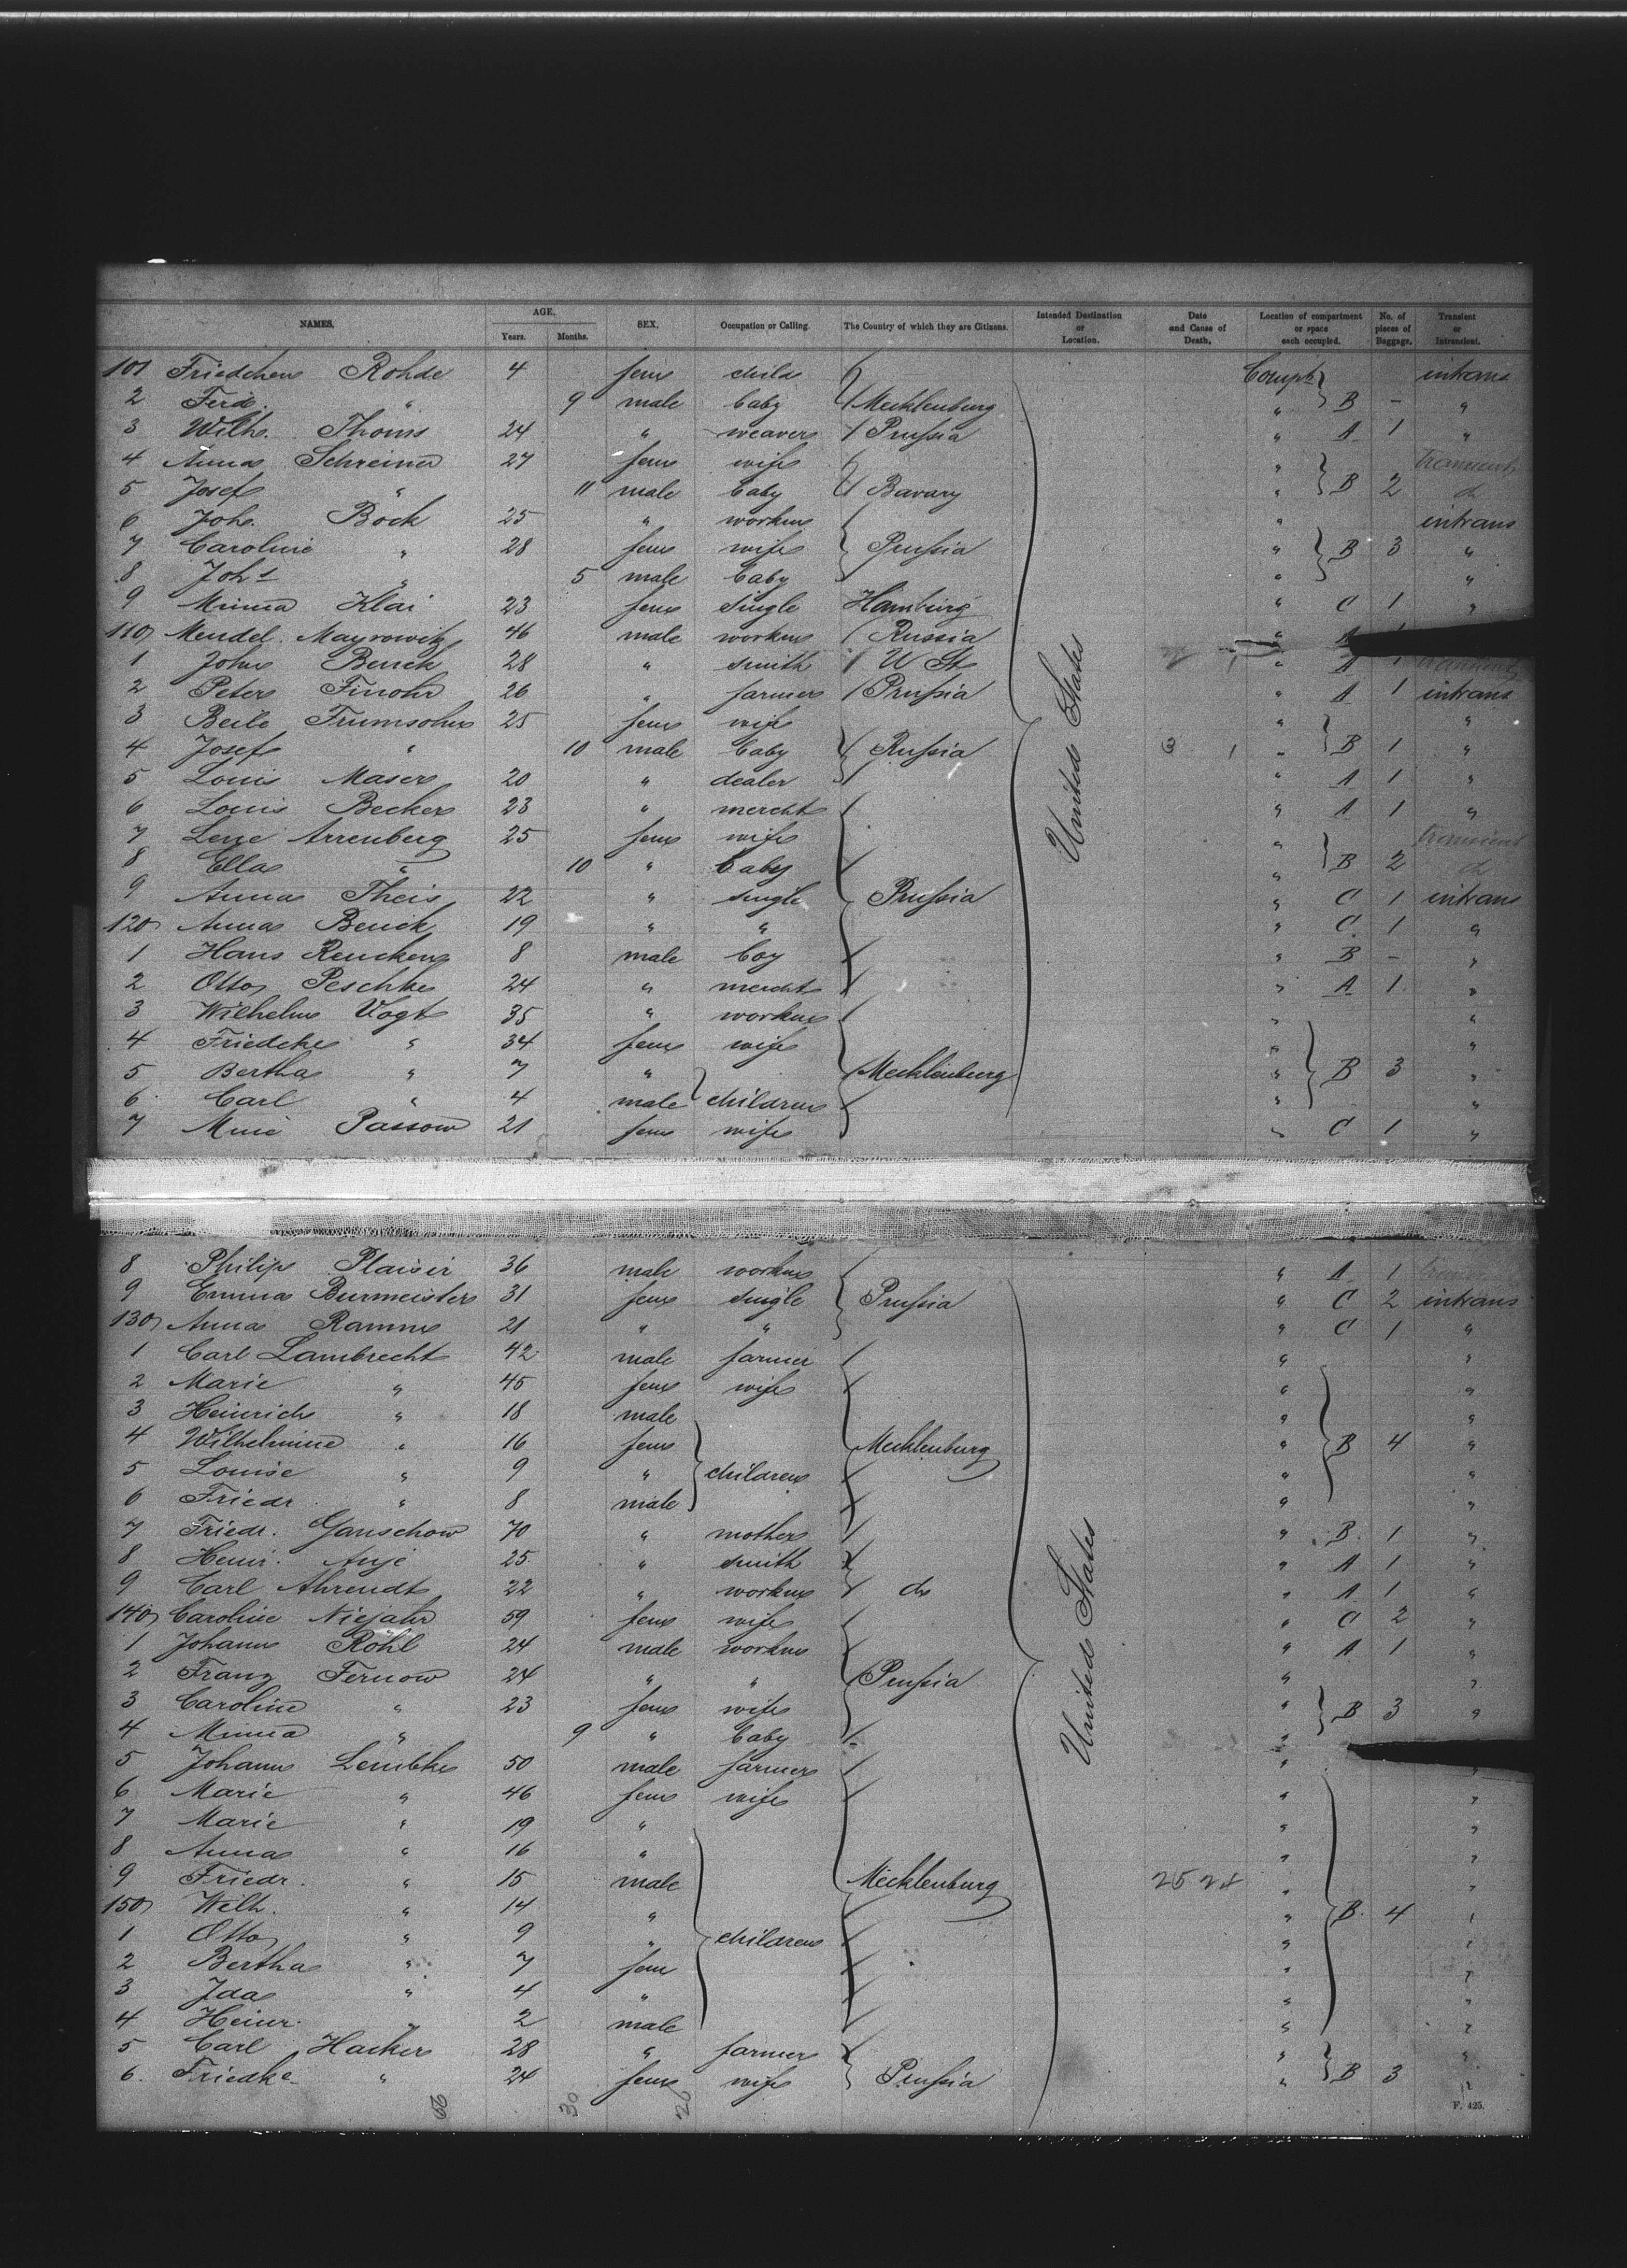 NAMES. AGE. Years. Months. SEX. Occupation or Calling. The Country of which they are Citizens. Intended Destination or Location. Date and Cause of Death. Location of compartment or space each occupied. No. of pieces of Baggage. Transient or Intransient.
101 Friedchen Rohde 4 fem child Compt intrans
2 Ferd. " 9 male baby Mecklenburg " B - "
3 Wilh. Thoms 24 " weaver Prussia " A 1 "
4 Anna Schreiner 27 fem wife " transient
5 Josef " 11 male baby Bavary " B 2 do
6 Joh. Bock 25 " workm " intrans
7 Caroline " 28 fem wife Prussia " B 3 "
8 Joh " 5 male baby " "
9 Minna Klai 23 fem single Hamburg " C 1 "
110 Mendel Mayrowitz 46 male workm Russia " A
1 John Benck 28 " smith U St " A 1
2 Peter Finohr 26 " farmer Prussia " A 1 intrans
3 Beile Frumsohn 25 fem wife " "
4 Josef " 10 male baby Russia 3 1 " B 1 "
5 Louis Maser 20 " dealer " A 1 "
6 Louis Becker 23 " mercht " A 1 "
7 Lene Arrenberg 25 fem wife " transient
8 Ella " 10 " baby " B 2 do
9 Anna Theis 22 " single Prussia " C 1 intrans
120 Anna Benick 19 " " " C 1 "
1 Hans Rencken 8 male boy " B - "
2 Otto Peschke 24 " mercht " A 1 "
3 Wilhelm Vogt 35 " workm " "
4 Friedcke " 34 fem wife " "
5 Bertha " 7 " Mecklenburg " B 3 "
6 Carl " 4 male children " "
7 Mine Passow 21 fem wife " C 1 "
United States
8 Philip Plaisir 36 male workm " A 1
9 Emma Burmeister 31 fem single Prussia " C 2 intrans
130 Anna Ramm 21 " " " C 1 "
1 Carl Lambrecht 42 male farmer " "
2 Marie " 45 fem wife " "
3 Heinrich " 18 male " "
4 Wilhelmine " 16 fem Mecklenburg " B 4 "
5 Louise " 9 " children " "
6 Friedr. " 8 male " "
7 Friedr. Ganschow 70 " mother " B 1 "
8 Heinr. Anje 25 " smith " A 1 "
9 Carl Ahrendt 22 " workm do " A 1 "
140 Caroline Niejahr 59 fem wife " C 2 "
1 Johann Röhl 24 male workm " A 1 "
2 Franz Fernow 24 " " Prussia " "
3 Caroline " 23 fem wife " B 3 "
4 Minna " 9 " baby "
5 Johann Lembke 50 male farmer " "
6 Marie " 46 fem wife " "
7 Marie " 19 " " "
8 Anna " 16 " " "
9 Friedr. " 15 male Mecklenburg 25 24 " "
150 Wilh. " 14 " " B 4 "
1 Otto " 9 " children " "
2 Bertha " 7 fem " "
3 Ida " 4 " " "
4 Heinr. " 2 male " "
5 Carl Hacker 28 " farmer " "
6 Friedke " 24 fem wife Prussia " B 3 "
United States
30 26
F. 425.